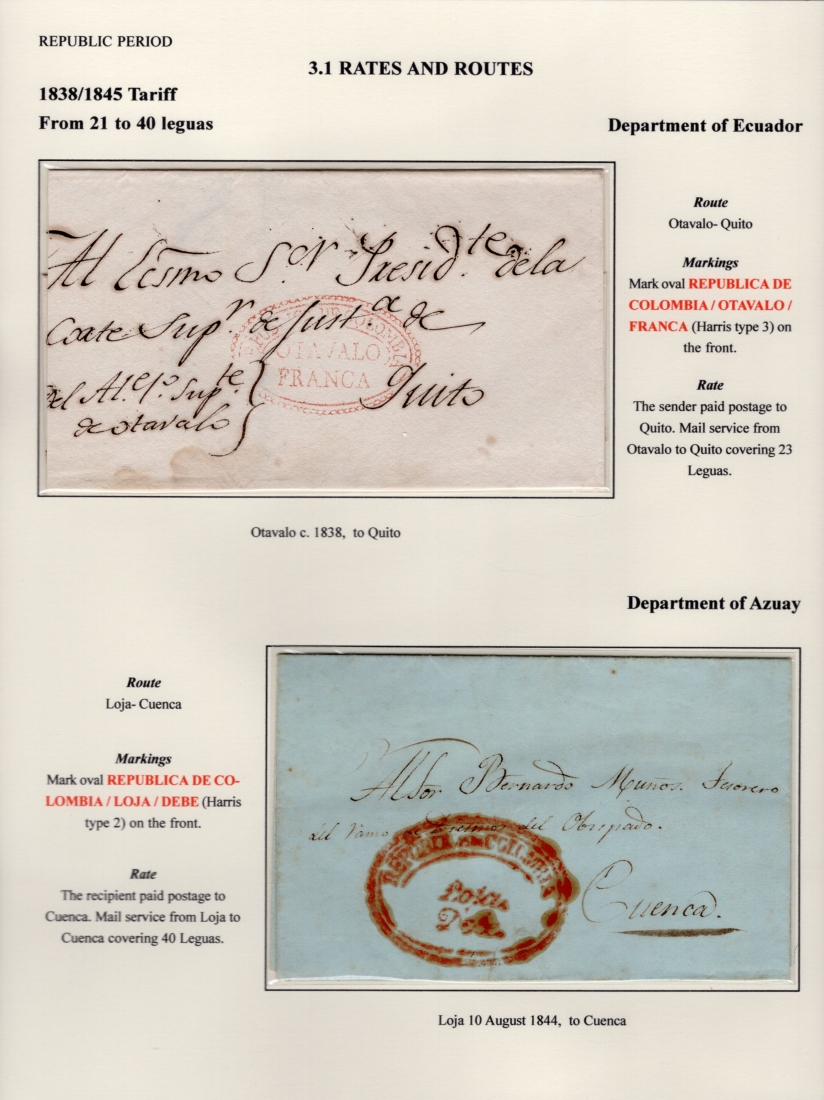 REPUBLIC PERIOD
3.1 RATES AND ROUTES
1838/1845 Tariff
From 21 to 40 leguas
Department of Ecuador
Al Ecsmo Sor Presidte de la
Corte Supr de Justa de
del Ale 1o Supte
de otavalo
Quito
REPUBLICA DE COLOMBIA
OTAVALO
FRANCA
Route
Otavalo- Quito
Markings
Mark oval REPUBLICA DE
COLOMBIA / OTAVALO /
FRANCA (Harris type 3) on
the front.
Rate
The sender paid postage to
Quito. Mail service from
Otavalo to Quito covering 23
Leguas.
Otavalo c. 1838, to Quito
Department of Azuay
Route
Loja- Cuenca
Markings
Mark oval REPUBLICA DE CO-
LOMBIA / LOJA / DEBE (Harris
type 2) on the front.
Rate
The recipient paid postage to
Cuenca. Mail service from Loja to
Cuenca covering 40 Leguas.
Al Sor Bernardo Muños. Tesorero
del Ramo de del Obispado.
Cuenca.
COLOMBIA
Loja
Debe
Loja 10 August 1844, to Cuenca